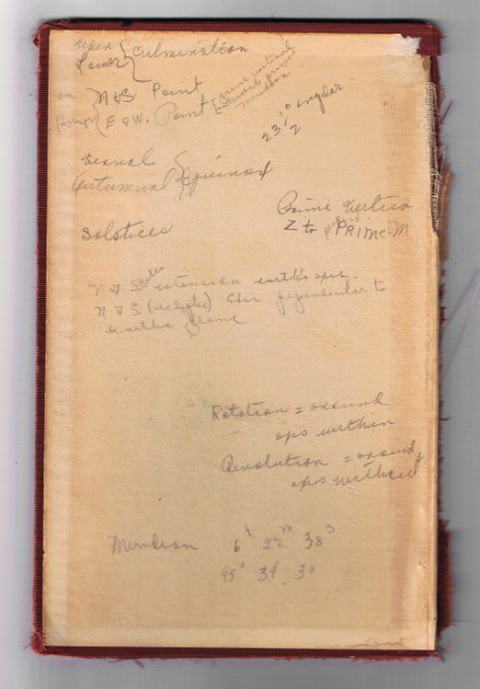 upper
Lower } Culmination
N & S Point
E & W. Point
prime vertical
meridian
23½° angles.
Vernal
Autumnal } Equinox
Solstices
Prime Vertical
Z to PRIME M
N & S Poles extension earth's axis.
N & S (ecliptic) axis perpendicular to
earth's plane
Rotation = around
axis within
Revolution = around
axis without
Meridian 6h 22m 38s
95° 39 30